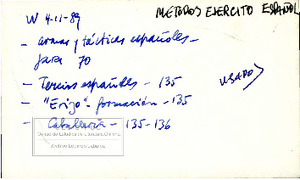 W 4-11-89
METODOS EJERCITO ESPAÑOL
- armas y tácticas españoles -
para 70
- Tercios españoles - 135
USADO
- "Erizo" - formación - 135
- Caballería - 135-136